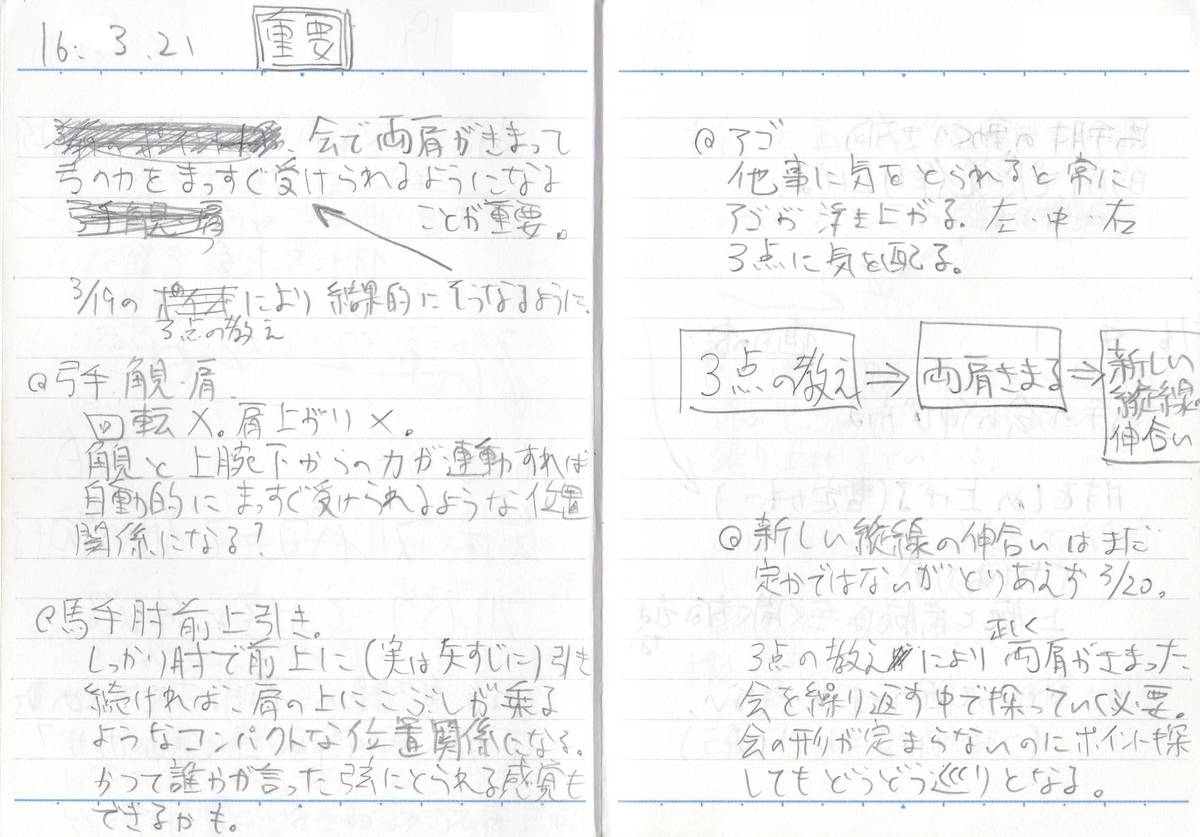 16. 3.21 重要
会で両肩がきまって
弓の力をまっすぐ受けられるようになる
ことが重要。
3/19の により結果的にそうなるように、
3点の教え
@弓手観・肩
回転×。肩上がり×。
観と上腕下からの力が連動すれば
自動的にまっすぐ受けられるような位置
関係になる?
@馬手肘前上引き。
しっかり肘で前上に(実は矢すじに)引き
続ければ肩の上にこうしが乗る
ようなコンパクトな位置関係になる。
かつて誰かが言った弦にとられる感覚も
できるかも。
@アゴ
他事に気をとられると常に
アゴが浮き上がる。左・中・右
3点に気を配る。
3点の教え⇒両肩きまる⇒新しい
縦線の
伸合い
@新しい縦線の伸合いはまだ
定かではないがとりあえず3/20。
正しく
3点の教えにより両肩がきまった
会を繰り返す中で探っていく必要。
会の形が定まらないのにポイント探
してもどうどう巡りとなる。